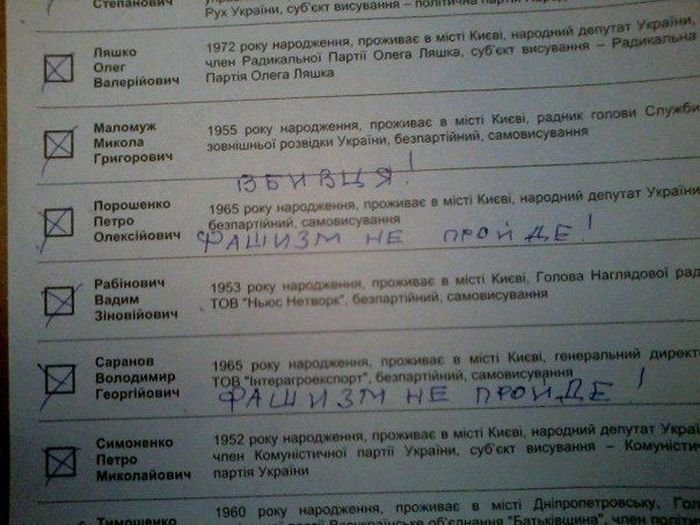 Степанович
Рух України, суб'єкт висування – політична партія
Ляшко
Олег
Валерійович
1972 року народження, проживає в місті Києві, народний депутат України,
член Радикальної Партії Олега Ляшка, суб'єкт висування – Радикальна
Партія Олега Ляшка
Маломуж
Микола
Григорович
1955 року народження, проживає в місті Києві, радник голови Служби
зовнішньої розвідки України, безпартійний, самовисування
ВБИВЦЯ!
Порошенко
Петро
Олексійович
1965 року народження, проживає в місті Києві, народний депутат України
безпартійний, самовисування
ФАШИЗМ НЕ ПРОЙДЕ!
Рабінович
Вадим
Зіновійович
1953 року народження, проживає в місті Києві, Голова Наглядової рад
ТОВ "Ньюс Нетворк", безпартійний, самовисування
Саранов
Володимир
Георгійович
1965 року народження, проживає в місті Києві, генеральний директ
ТОВ "Інтерагроекспорт", безпартійний, самовисування
ФАШИЗМ НЕ ПРОЙДЕ!
Симоненко
Петро
Миколайович
1952 року народження, проживає в місті Києві, народний депутат Украї
член Комуністичної партії України, суб'єкт висування – Комуністич
партія України
Тимошенко
1960 року народження, проживає в місті Дніпропетровську, Гол
Всеукраїнське об'єднання "Батьківщина", член